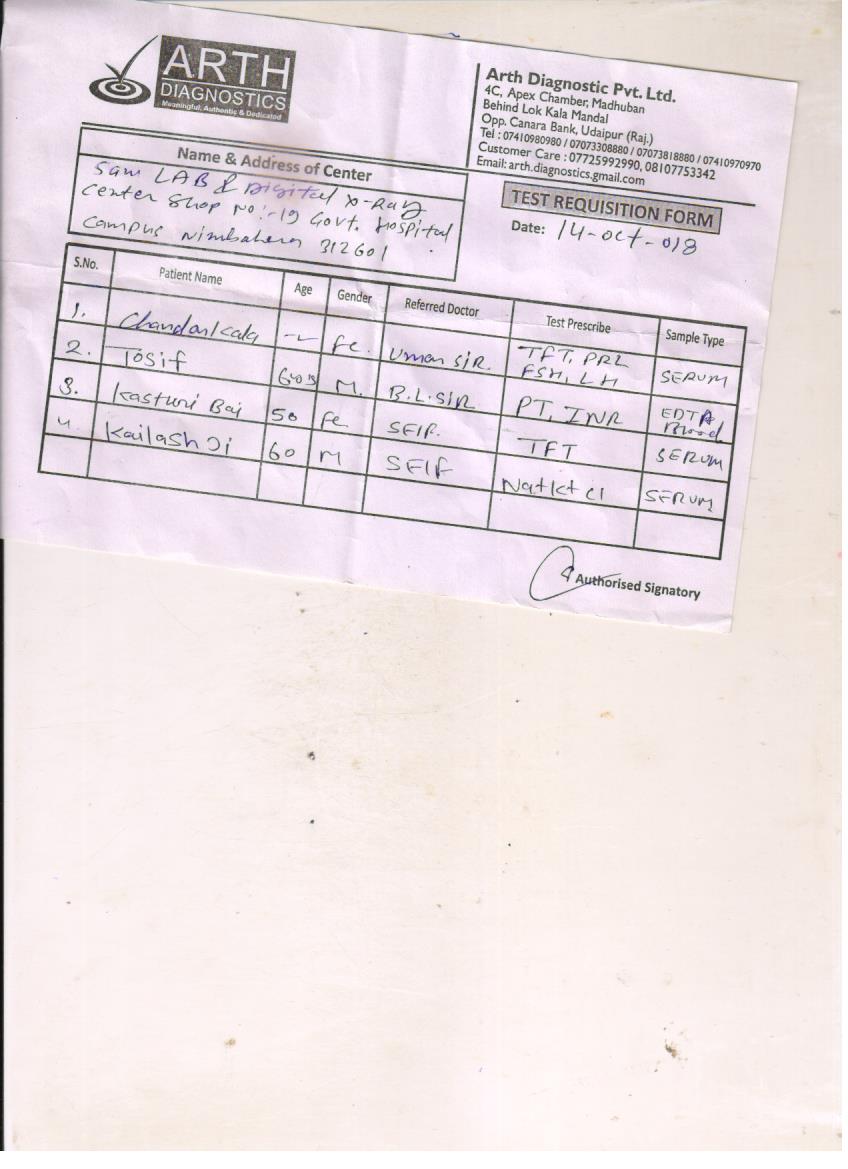 ARTH
DIAGNOSTICS
Meaningful, Authentic & Dedicated
Arth Diagnostic Pvt. Ltd.
4C, Apex Chamber, Madhuban
Behind Lok Kala Mandal
Opp. Canara Bank, Udaipur (Raj.)
Tel : 07410980980 / 07073308880 / 07073818880 / 07410970970
Customer Care : 07725992990, 08107753342
Email: arth.diagnostics.gmail.com
Name & Address of Center
Sam LAB & Digital X-Ray
Center Shop No:-19 Govt. Hospital
Campus Nimbahera 312601
TEST REQUISITION FORM
Date: 14-oct-018
S.No. Patient Name Age Gender Referred Doctor Test Prescribe Sample Type
1. Chandankala Fe. SIR. TFT, PRL SERUM
FSH, LH
2. Tosif M. B.L. SIR PT, INR EDTA
Blood
3. Kasturi Bai 50 Fe SElF. TFT SERUM
4 Kailash Ji 60 M SElF Na+K+Cl SERUM
Authorised Signatory